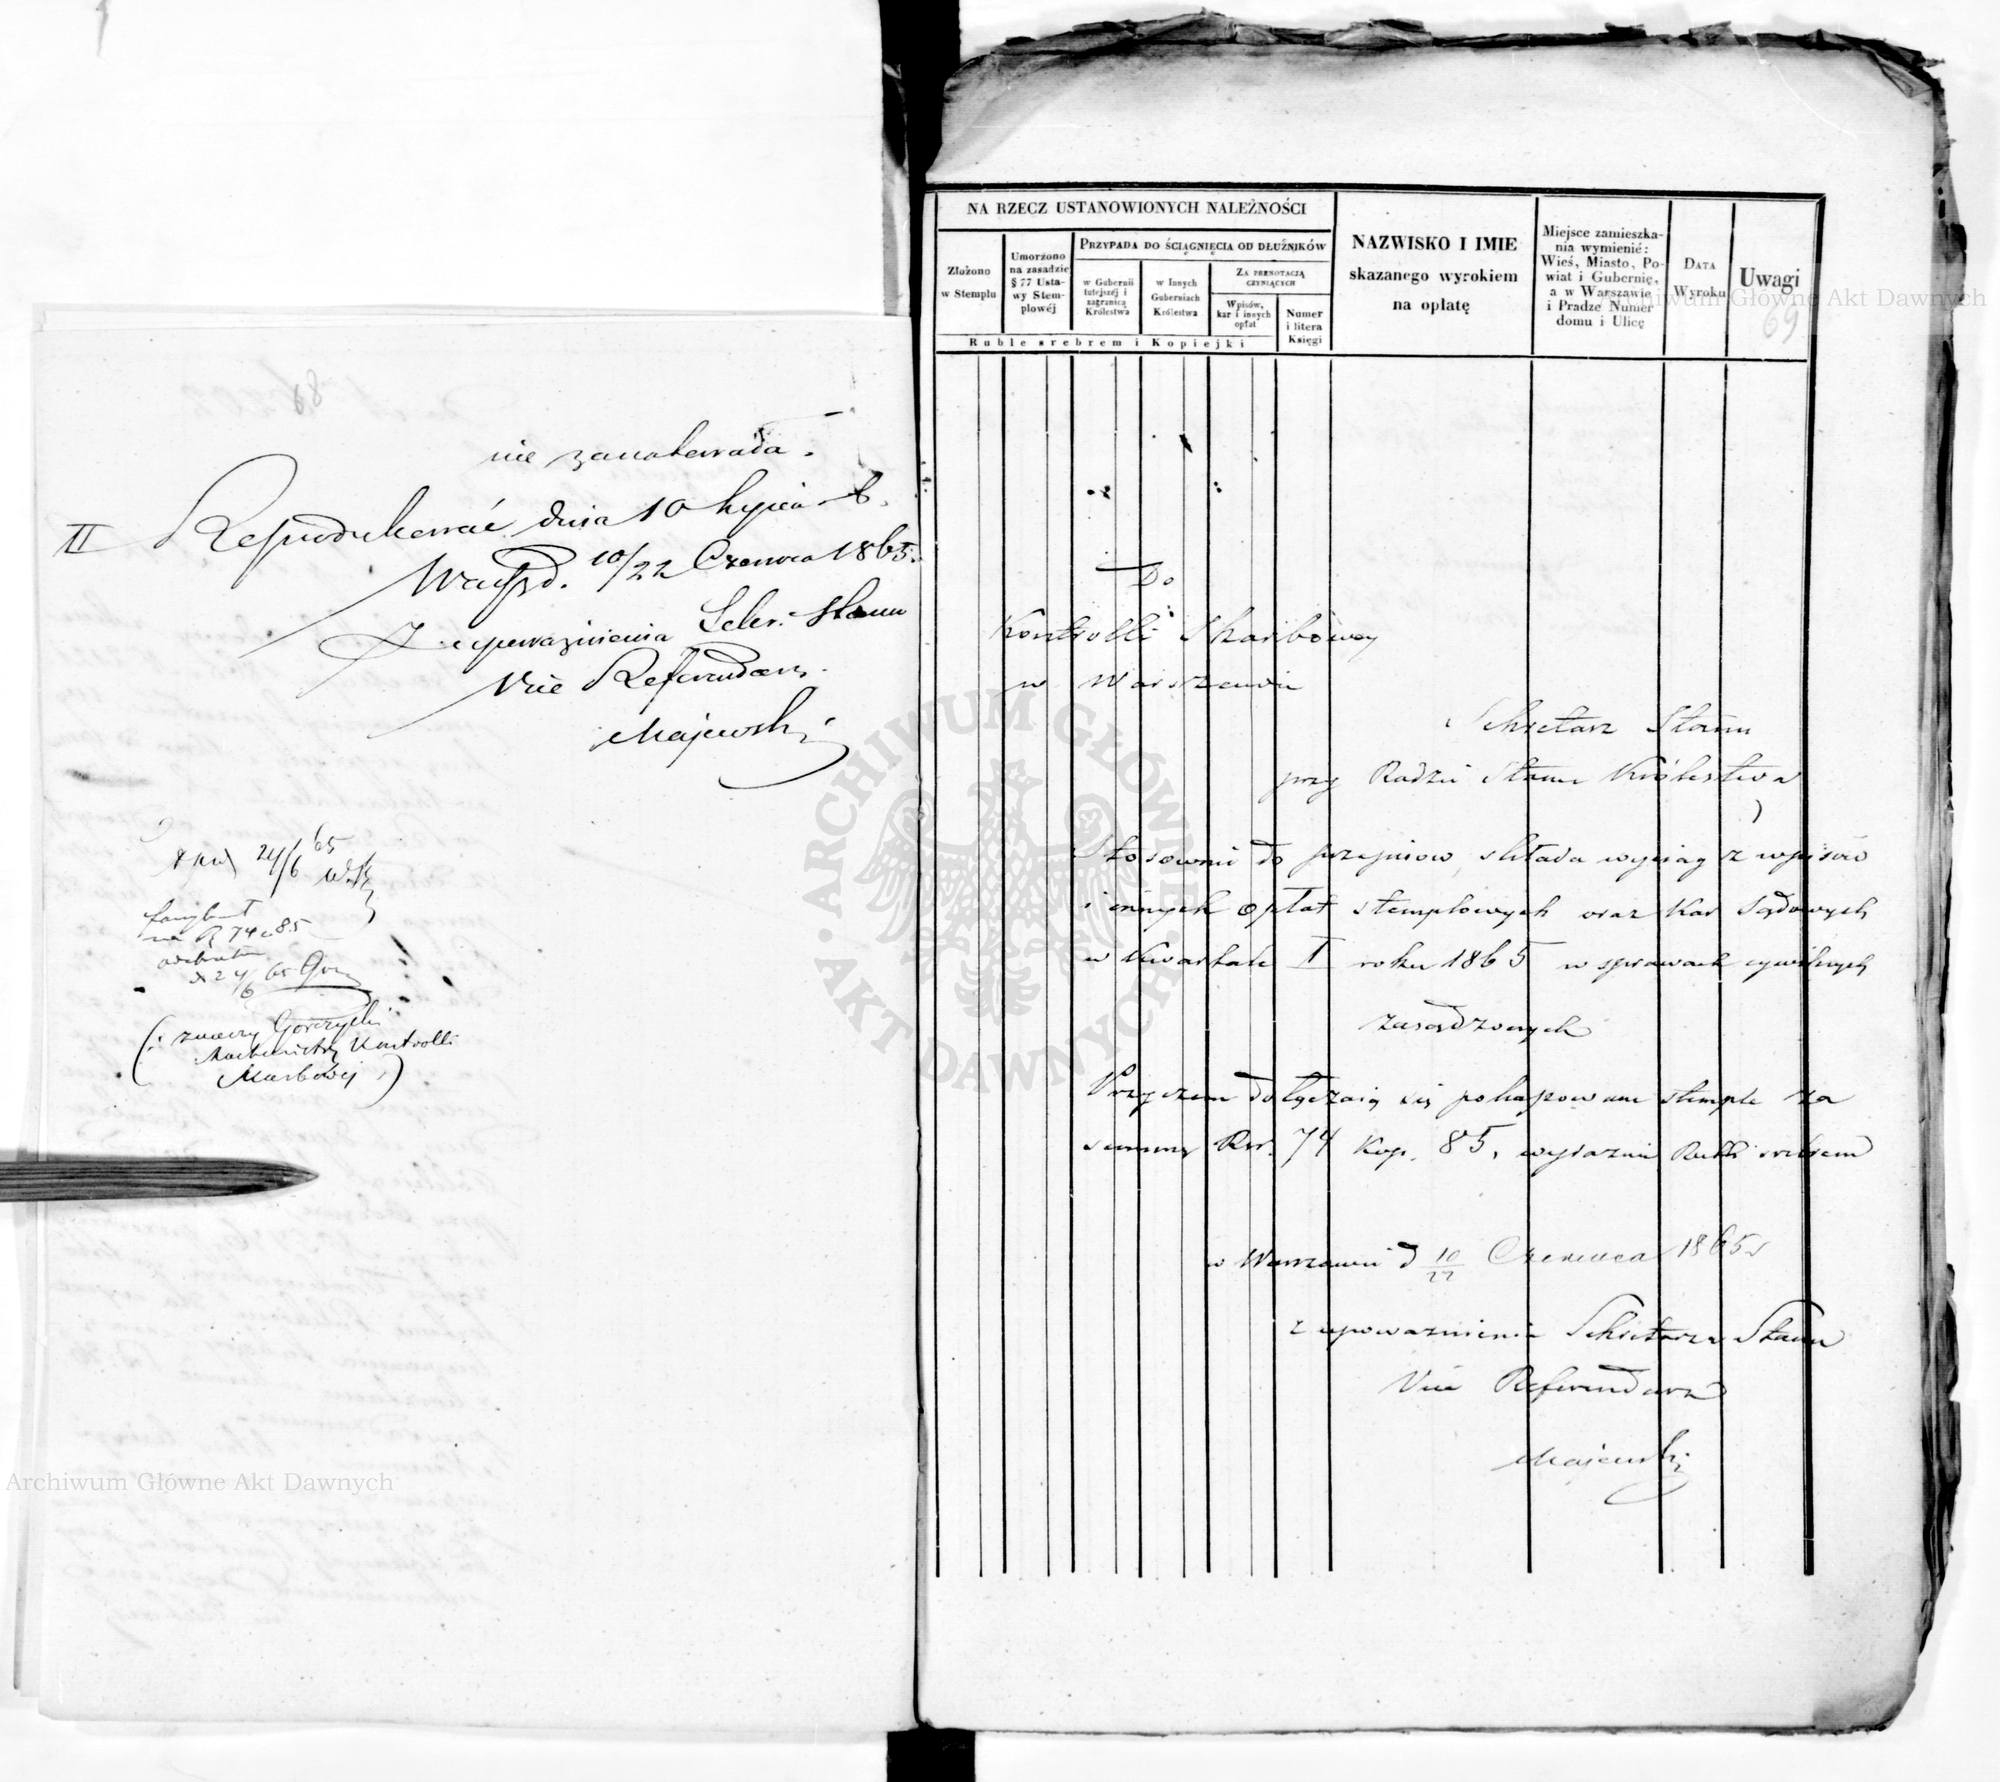 nie zanotowała.
II Reprodukować dnia 10 lipca r. b.
Warsz. d. 10/22 Czerwca 1865.
Z upoważnienia Sekr. Stanu
Vice Referendarz
Majewski
24/6 65
na R 74 c 85
odebrałem
d 24/6 65
(: znaczy Gorczycki
Kontrolli
Skarbowej :)
69
NA RZECZ USTANOWIONYCH NALEŻNOŚCI
Złożono
w Stemplu
Umorżono
na zasadzie
§ 77 Usta-
wy Stem-
plowéj
PRZYPADA DO ŚCIĄGNIĘCIA OD DŁUŻNIKÓW
w Gubernii
tutejszéj i
zagranicą
Królestwa
w Innych
Guberniach
Królestwa
ZA PRENOTACJĄ
CZYNIĄCYCH
Wpisów,
kar i innych
opłat
Numer
i litera
Księgi
Ruble srebrem i Kopiejki
NAZWISKO I IMIE
skazanego wyrokiem
na opłatę
Miejsce zamieszka-
nia wymienić:
Wieś, Miasto, Po-
wiat i Gubernię,
a w Warszawie
i Pradze Numer
domu i Ulicę
DATA
Wyroku
Uwagi
69
Do
Kontrolli Skarbowey
w Warszawie
Sekretarz Stanu
przy Radzie Stanu Królestwa
Stosownie do przepisow, składa wyciąg z wpisów
i innych opłat stemplowych oraz Kar Sądowych
w Kwartale I roku 1865 w sprawach cywilnych
zasądzonych
Przyczem dołączaią się pokassowane stemple za
summę Rsr. 74 Kop. 85, wyraznie Rubli srebrem
w Warszawie d 10/22 Czerwca 1865 r
z upoważnienia Sekretarza Stanu
Vice Referendarz
Majewski
Archiwum Główne Akt Dawnych
Archiwum Główne Akt Dawnych
· ARCHIWUM GŁÓWNE · AKT DAWNYCH